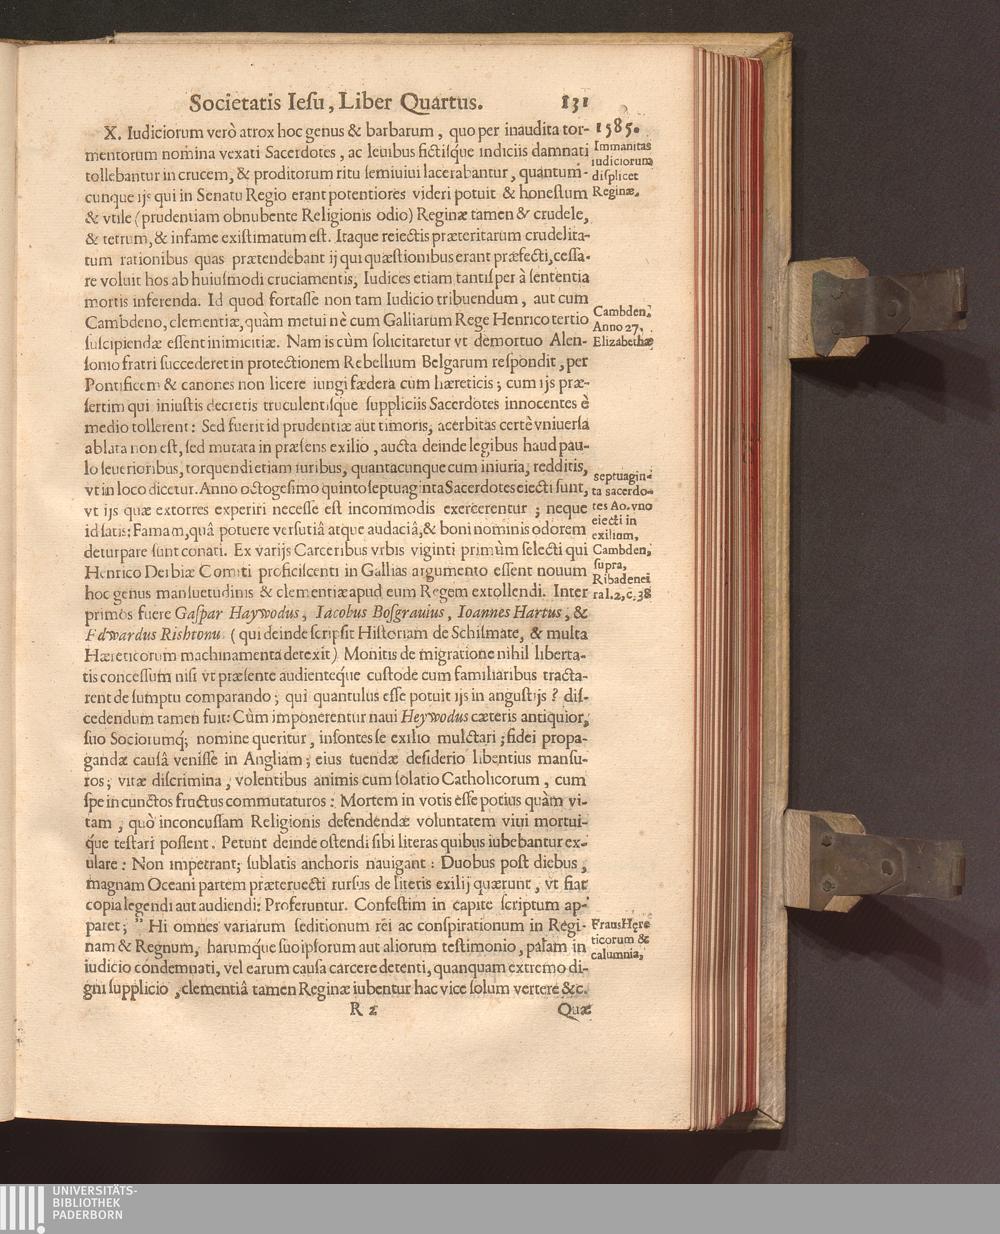 Societatis Iesu, Liber Quartus. 131
X. Iudiciorum verò atrox hoc genus & barbarum, quo per inaudita tor-
mentorum nomina vexati Sacerdotes, ac leuibus fictisque indiciis damnati
tollebantur in crucem, & proditorum ritu semiuiui lacerabantur, quantum-
cunque ijs qui in Senatu Regio erant potentiores videri potuit & honestum
& vtile (prudentiam obnubente Religionis odio) Reginæ tamen & crudele,
& tetrum, & infame existimatum est. Itaque reiectis præteritarum crudelita-
tum rationibus quas prætendebant ij qui quæstionibus erant præfecti, cessa-
re voluit hos ab huiusmodi cruciamentis, Iudices etiam tantisper à sententia
mortis inferenda. Id quod fortasse non tam Iudicio tribuendum, aut cum
Cambdeno, clementiæ, quàm metui nè cum Galliarum Rege Henrico tertio
suscipiendæ essent inimicitiæ. Nam is cùm solicitaretur vt demortuo Alen-
sonio fratri succederet in protectionem Rebellium Belgarum respondit, per
Pontificem & canones non licere iungi fædera cum hæreticis; cum ijs præ-
sertim qui iniustis decretis truculentisque suppliciis Sacerdotes innocentes è
medio tollerent: Sed fuerit id prudentiæ aut timoris, acerbitas certè vniuersa
ablata non est, sed mutata in præsens exilio, aucta deinde legibus haud pau-
lo seuerioribus, torquendi etiam iuribus, quantacunque cum iniuria, redditis,
vt in loco dicetur. Anno octogesimo quinto septuaginta Sacerdotes eiecti sunt,
vt ijs quæ extorres experiri necesse est incommodis exercerentur; neque
id satis: Famam, quâ potuere versutiâ atque audaciâ, & boni nominis odorem
deturpare sunt conati. Ex varijs Carceribus vrbis viginti primùm selecti qui
Henrico Derbiæ Comiti proficiscenti in Gallias argumento essent nouum
hoc genus mansuetudinis & clementiæ apud eum Regem extollendi. Inter
primos fuere Gaspar Haywodus, Iacobus Bosgrauius, Ioannes Hartus, &
Edwardus Rishtonu (qui deinde scripsit Historiam de Schismate, & multa
Hæreticorum machinamenta detexit) Monitis de migratione nihil liberta-
tis concessum nisi vt præsente audienteque custode cum familiaribus tracta-
rent de sumptu comparando; qui quantulus esse potuit ijs in angustijs? dis-
cedendum tamen fuit: Cùm imponerentur naui Heywodus cæteris antiquior,
suo Sociorumq; nomine queritur, insontes se exilio mulctari; fidei propa-
gandæ causâ venisse in Angliam; eius tuendæ desiderio libentius mansu-
ros; vitæ discrimina, volentibus animis cum solatio Catholicorum, cum
spe in cunctos fructus commutaturos: Mortem in votis esse potius quàm vi-
tam, quò inconcussam Religionis defendendæ voluntatem viui mortui-
que testari possent. Petunt deinde ostendi sibi literas quibus iubebantur ex-
ulare: Non impetrant; sublatis anchoris nauigant: Duobus post diebus,
magnam Oceani partem præteruecti rursus de literis exilij quærunt, vt fiat
copia legendi aut audiendi: Proferuntur. Confestim in capite scriptum ap-
paret; " Hi omnes variarum seditionum rei ac conspirationum in Regi-
nam & Regnum, harumque suo ipsorum aut aliorum testimonio, palam in
iudicio condemnati, vel earum causa carcere detenti, quanquam extremo di-
gni supplicio, clementiâ tamen Reginæ iubentur hac vice solum vertere &c.
R 2 Quæ
1585.
Immanitas
iudiciorum
displicet
Reginæ.
Cambden,
Anno 27.
Elizabethæ
septuagin-
ta sacerdo-
tes Ao. vno
eiecti in
exilium,
Cambden,
supra,
Ribadenei
ral. 2, c. 38
Fraus Hęre
ticorum &
calumnia,
UNIVERSITÄTS-
BIBLIOTHEK
PADERBORN